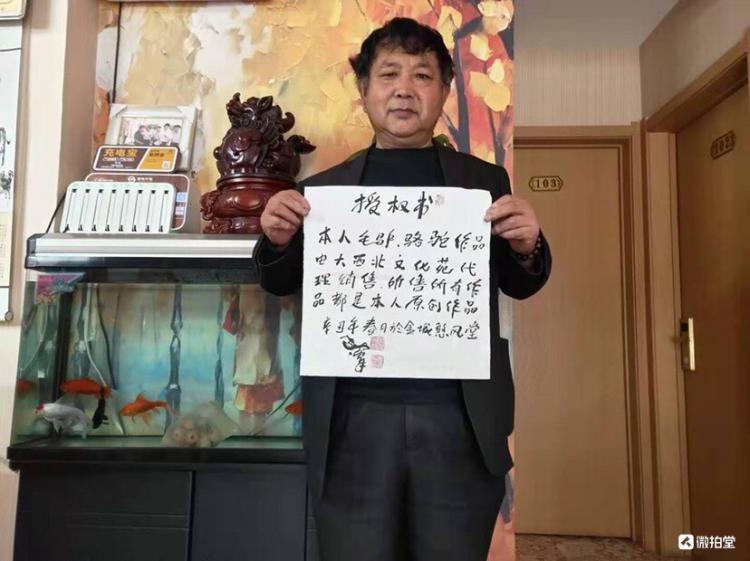 授权书
本人毛驴、骆驼作品
由大西北文化苑代
理销售,所售所有作
品都是本人原创作品
辛丑年春月於金城憨风堂
充电宝
103
102
微拍堂